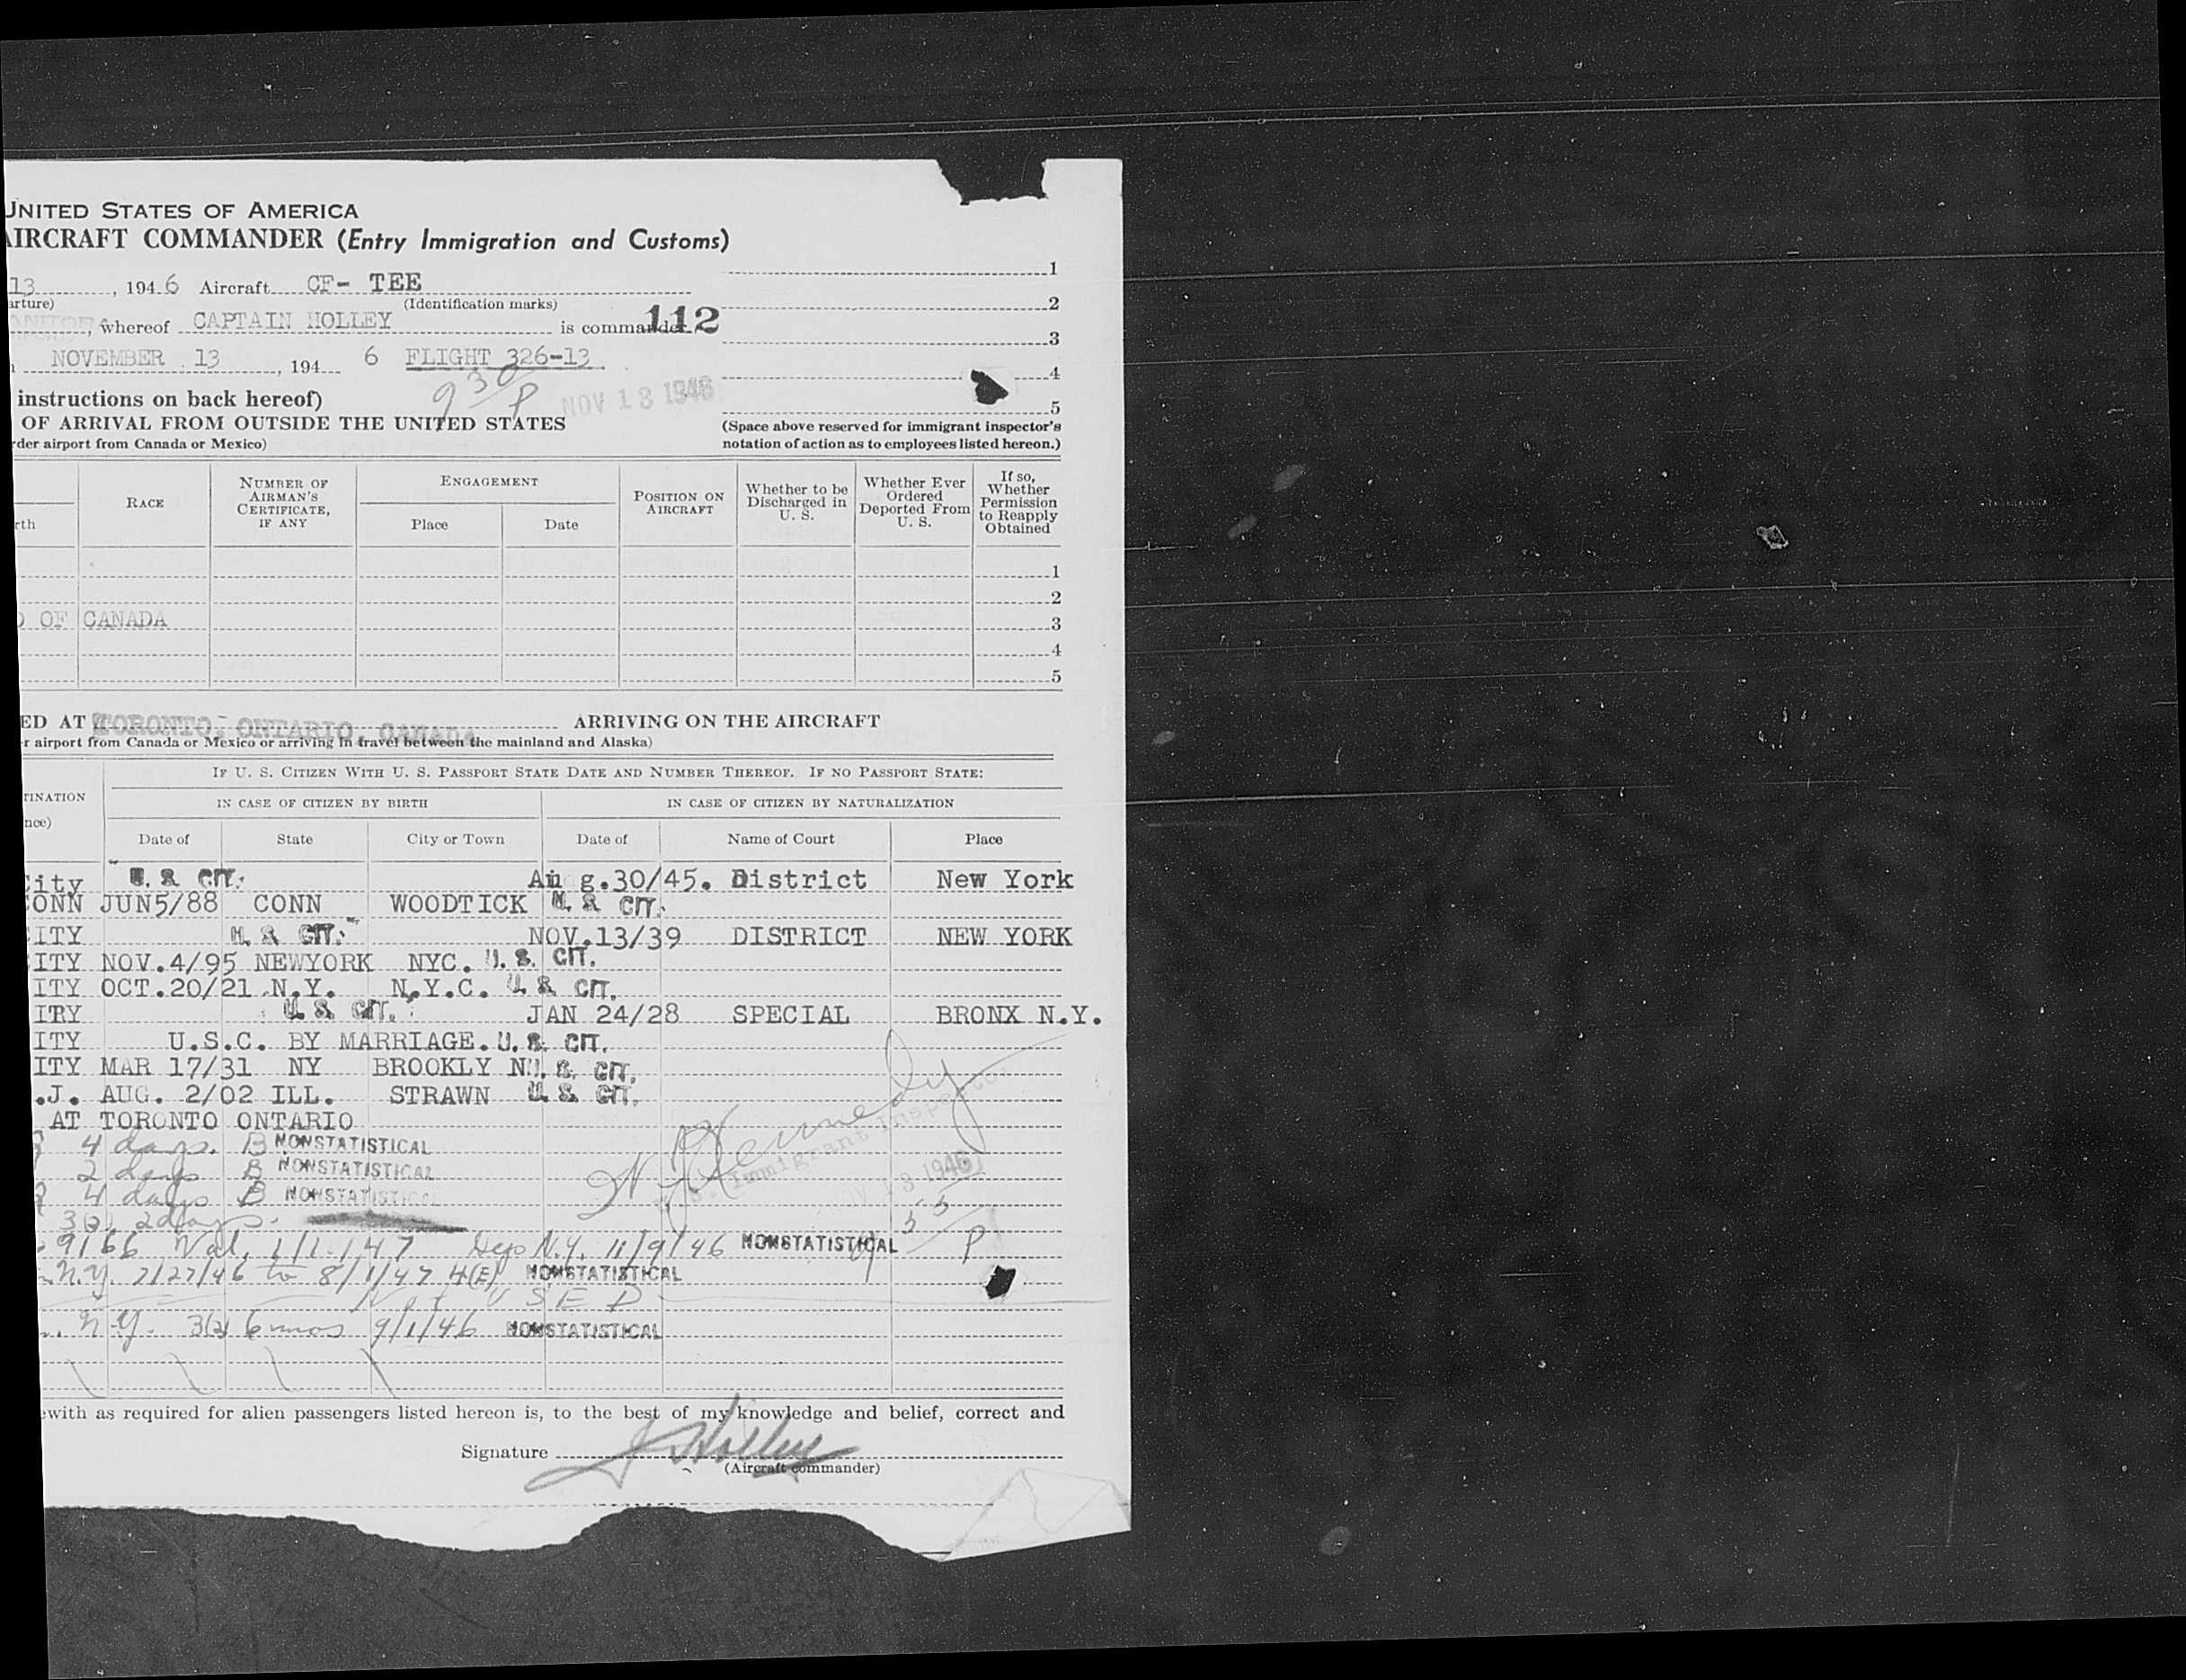 UNITED STATES OF AMERICA
AIRCRAFT COMMANDER (Entry Immigration and Customs)
13, 1946 Aircraft CF- TEE
arture) (Identification marks)
, whereof CAPTAIN HOLLEY is commander. 112
NOVEMBER 13, 194 6 FLIGHT 326-13
9 30/P NOV 13 1946
1
2
3
4
5
instructions on back hereof)
OF ARRIVAL FROM OUTSIDE THE UNITED STATES
rder airport from Canada or Mexico)
(Space above reserved for immigrant inspector's
notation of action as to employees listed hereon.)
rth RACE NUMBER OF AIRMAN'S CERTIFICATE, IF ANY ENGAGEMENT Place Date POSITION ON AIRCRAFT Whether to be Discharged in U. S. Whether Ever Ordered Deported From U. S. If so, Whether Permission to Reapply Obtained
1
2
OF CANADA 3
4
5
ED AT TORONTO, ONTARIO, CANADA ARRIVING ON THE AIRCRAFT
r airport from Canada or Mexico or arriving in travel between the mainland and Alaska)
IF U. S. CITIZEN WITH U. S. PASSPORT STATE DATE AND NUMBER THEREOF. IF NO PASSPORT STATE:
TINATION IN CASE OF CITIZEN BY BIRTH IN CASE OF CITIZEN BY NATURALIZATION
nce)
Date of State City or Town Date of Name of Court Place
City U. S. CIT. Aug.30/45. District New York
CONN JUN5/88 CONN WOODTICK U. S. CIT.
CITY U. S. CIT. NOV.13/39 DISTRICT NEW YORK
CITY NOV.4/95 NEWYORK NYC. U. S. CIT.
ITY OCT.20/21 N.Y. N.Y.C. U. S. CIT.
ITRY U. S. CIT. JAN 24/28 SPECIAL BRONX N.Y.
ITY U.S.C. BY MARRIAGE. U. S. CIT.
ITY MAR 17/31 NY BROOKLY N U. S. CIT.
.J. AUG. 2/02 ILL. STRAWN U. S. CIT.
AT TORONTO ONTARIO
4 days. B NONSTATISTICAL
2 days B NONSTATISTICAL
4 days B NONSTATISTICAL
3(2) 2 days.
Kennedy
Immigrant Inspector
NOV 13 1946
9 55/P
9166 Val. 1/1/47 Dep N.Y. 11/9/46 NONSTATISTICAL
N.Y. 7/27/46 to 8/1/47 4(E) NONSTATISTICAL
USED
N.Y. 3(2) 6 mos 9/1/46 NONSTATISTICAL
ewith as required for alien passengers listed hereon is, to the best of my knowledge and belief, correct and
Signature J Holley
(Aircraft commander)